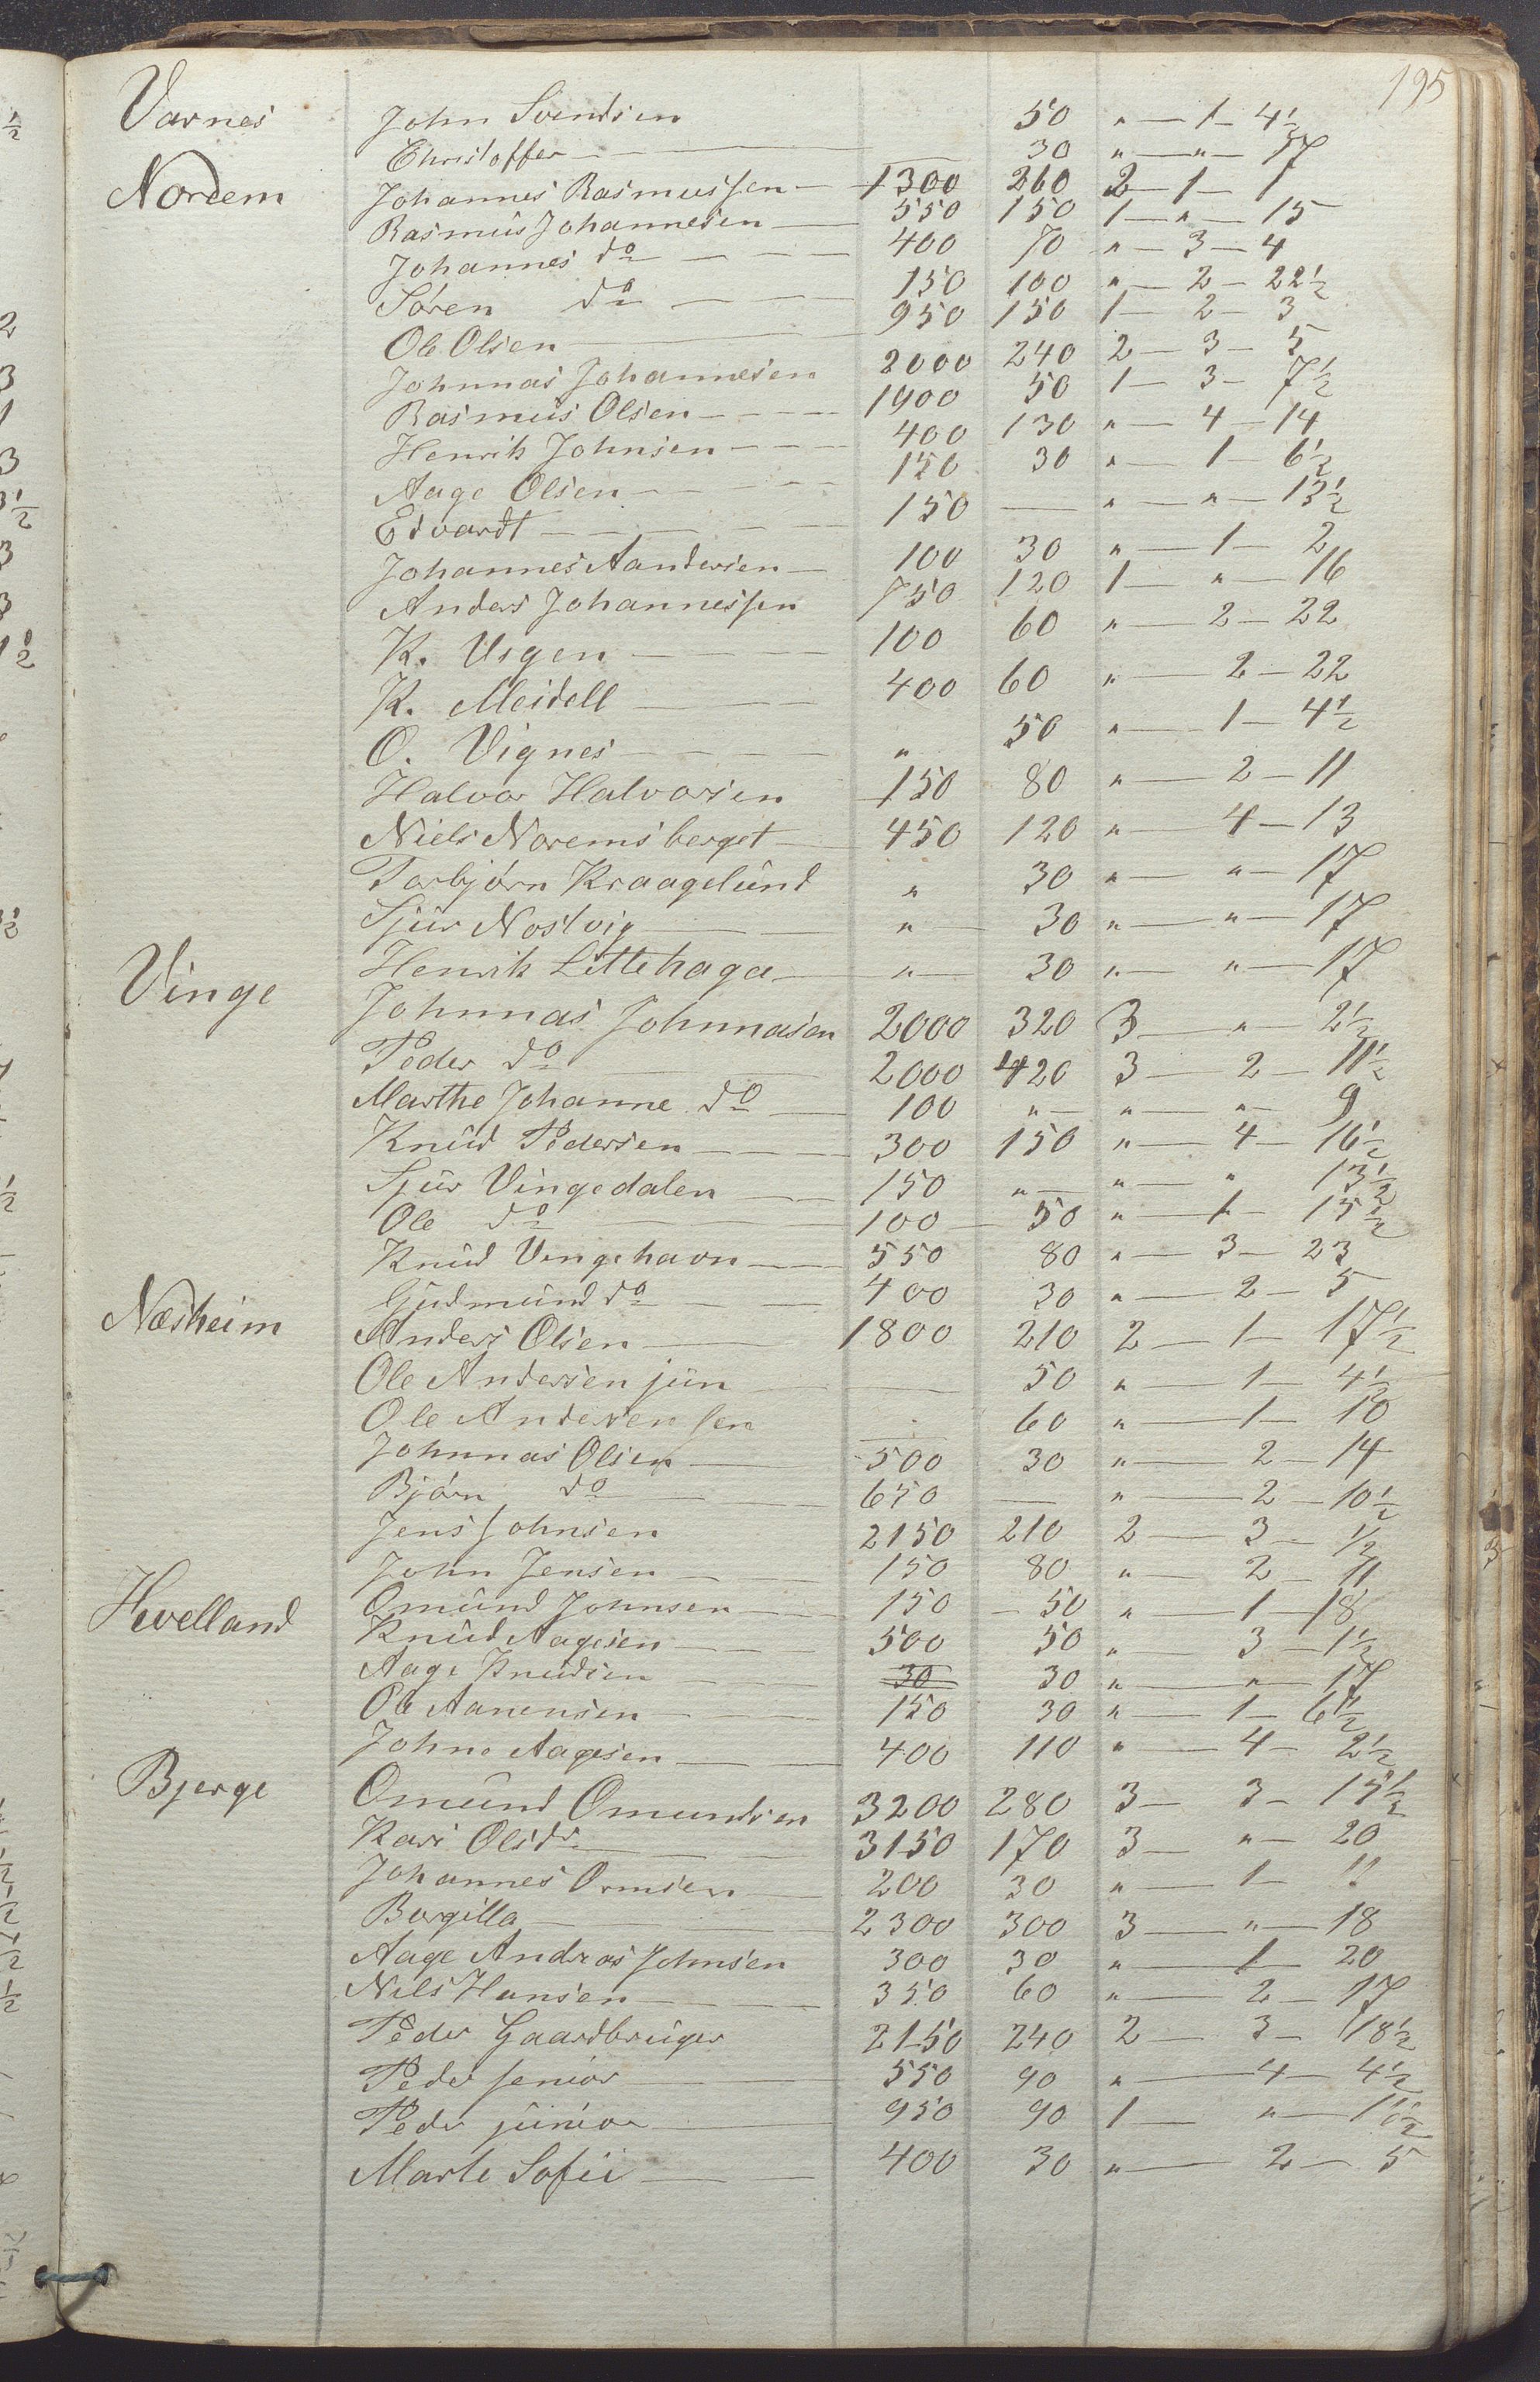 195
Varnes John Svendsen 50 " — 1 — 4½
Christoffer — 30 " — " — 17
Nordem Johannes Rasmussen — 1300 260 2 — 1 — 1
Rasmus Johannesen — 550 150 1 — " — 15
Johannes do — 400 70 " — 3 — 4
Søren do — 150 100 " — 2 — 22½
Ole Olsen — 950 150 1 — 2 — 3
Johnnas Johannesen 2000 240 2 — 3 — 5
Rasmus Olsen — 1900 50 1 — 3 — 7½
Henrik Johnsen — 400 130 " — 4 — 14
Aage Olsen — 150 30 " — 1 — 6½
Edvardt — 150 — " — " — 13½
Johannes Aandersen — 100 30 " — 1 — 2
Anders Johannessen 750 120 1 — " — 16
K. Ursgen — 100 60 " — 2 — 22
K. Meidell — 400 60 " — 2 — 22
O. Vignes — " 50 " — 1 — 4½
Halvor Halvorsen 150 80 " — 2 — 11
Niels Noremsberget — 450 120 " — 4 — 13
Torbjørn Kraagelund " 30 " — " — 17
Sjur Nostvig — " — 30 " — " — 17
Henrik Littehaga — " — 30 " — " — 17
Vinge Johnnas Johnnasen 2000 320 3 — " — 2½
Peder do — 2000 420 3 — 2 — 11½
Marthe Johanne do — 100 " — " — " — 9
Knud Pedersen — 300 150 " — 4 — 16½
Sjur Vingedalen — 150 " — " — " 13½
Ole do — 100 — 50 " — 1 — 15½
Knud Vingehavn — 550 80 " — 3 — 23
Gudmund do — 400 30 " — 2 — 5
Næsheim Anders Olsen — 1800 210 2 — 1 — 17½
Ole Andersen jun — 50 " — 1 — 4½
Ole Andersen sen — 60 " — 1 — 10
Johnnas Olsen — 500 30 " — 2 — 14
Bjørn do — 650 — " — 2 — 10½
Jens Johnsen 2150 210 2 — 3 — ½
John Jensen — 150 80 " — 2 — 11
Hevelland Omund Johnsen — 150 — 50 " — 1 — 18
Knud Aagesen — 500 50 " 3 — 1½
Aage Knudsen — 30 30 " — " — 17
Ole Aanensen — 150 30 " — 1 — 6½
John Aagesen — 400 110 " — 4 — 2½
Bjerge Omund Omundsen 3200 280 3 — 3 — 15½
Kari Olsdr — 3150 170 3 — " — 20
Johannes Ormsen — 200 30 " — 1 — 11
Borgilla — 2300 300 3 — " — 18
Aage Andreas Johnsen 300 30 " — 1 — 20
Nils Hansen — 350 60 " — 2 — 17
Peder Gaardbruger 2150 240 2 — 3 — 18½
Peder senior — 550 90 " — 4 — 4½
Peder junior — 950 90 1 — " —
Marte Sofie — 400 30 " — 2 — 5